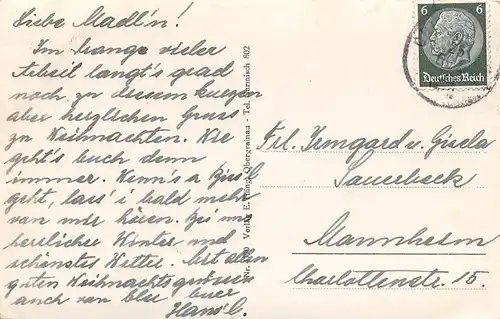 Liebe Madl'n!
Im Drange vieler
Arbeit langt's grad
noch zu diesem kurzen
aber herzlichen Gruss
zu Weihnachten. Wie
geht's Euch denn
immer. Wenn's a bissl
geht, lass' i bald mehr
von mir hören. Bei uns
herrlicher Winter und
schönstes Wetter. Mit allen
guten Weihnachtsgrüssen
auch von
Euer
Hans
Verlag E. Obergrainau - Tel. Garmisch 802
6 6
Deutsches Reich
Frl. Irmgard u. Gisela
Sauerbeck
Mannheim
Charlottenstr. 15.